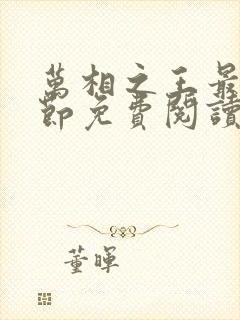 萬相之王最
節免費閱讀
董暉